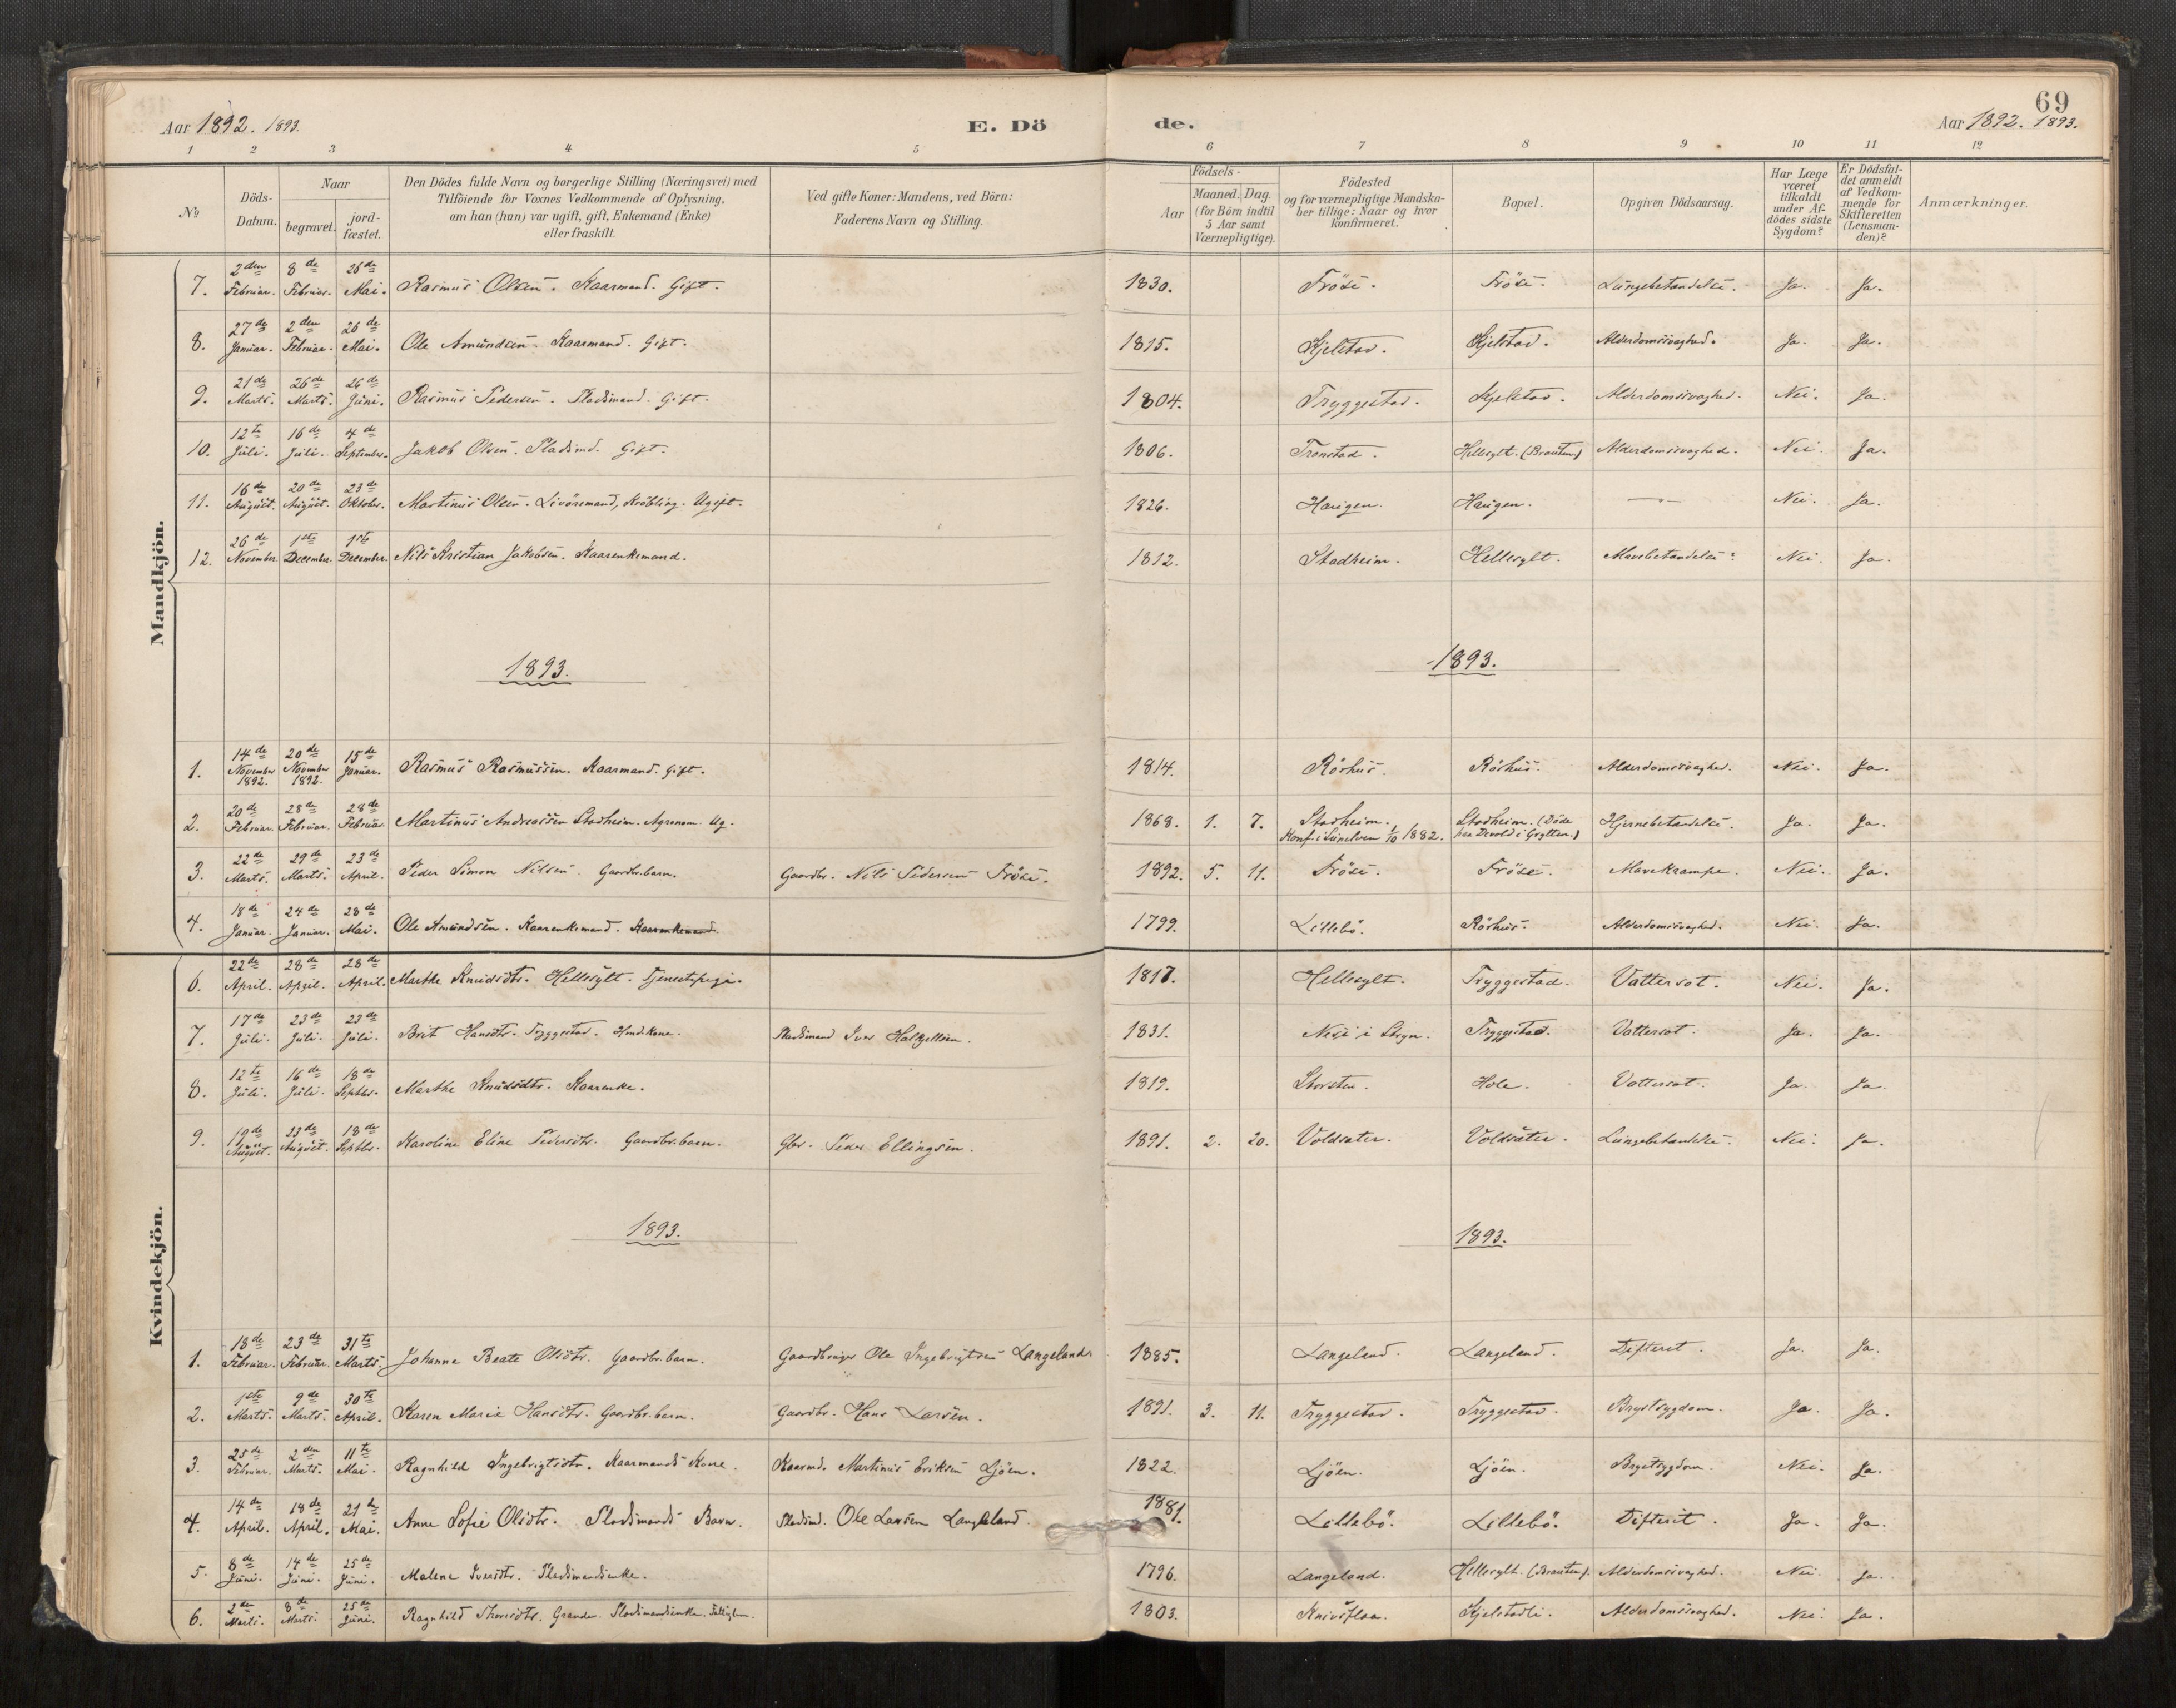 Aar 1892. 1893. E. Dö de. 69
Aar 1892. 1893.
1 2 3 4 5 6 7 8 9 10 11 12
№
Döds-
Datum.
Naar
begravet.
jord-
fæstet.
Den Dödes fulde Navn og borgerlige Stilling (Næringsvei) med
Tilföiende for Voxnes Vedkommende af Oplysning,
om han (hun) var ugift, gift, Enkemand (Enke)
eller fraskilt.
Ved gifte Koner: Mandens, ved Börn:
Faderens Navn og Stilling.
Födsels-
Aar
Maaned. Dag.
(for Börn indtil
5 Aar samt
Værnepligtige).
Födested
og for værnepligtige Mandska-
ber tillige: Naar og hvor
konfirmeret.
Bopæl.
Opgiven Dödsaarsag.
Har Læge
været
tilkaldt
under Af-
dödes sidste
Sygdom?
Er Dödsfal-
det anmeldt
af Vedkom-
mende for
Skifteretten
(Lensman-
den)?
Anmærkninger.
Mandkjön.
7. 2den Februar. 8de Februar. 26de Mai. Rasmus Olsen. Kaarmand. Gift. 1830. Fröse. Fröse. Lungebetændelse. Ja. Ja.
8. 27de Januar. 2den Februar. 26de Mai. Ole Amundsen. Kaarmand. Gift. 1815. Kjelstad. Kjelstad. Alderdomssvaghed. Ja. Ja.
9. 21de Marts. 26de Marts. 26de Juni. Rasmus Pedersen. Pladsmand. Gift. 1804. Tryggestad. Kjelstad. Alderdomssvaghed. Nei. Ja.
10. 12te Juli. 16de Juli. 4de September. Jakob Olsen. Pladsmd. Gift. 1806. Tronstad. Hellesylt. (Brauten) Alderdomssvaghed. Nei. Ja.
11. 16de August. 20de August. 23de Oktober. Martinus Olsen. Livöresmand, Kröbling. Ugift. 1826. Haugen. Haugen. — Nei. Ja.
12. 26de November. 1ste December. 1ste December. Nils Kristian Jakobsen. Kaarenkemand. 1812. Stadheim. Hellesylt. Mavebetændelse. Nei. Ja.
1893. 1893.
1. 14de November 1892. 20de November 1892. 15de Januar. Rasmus Rasmussen. Kaarmand. Gift. 1814. Röshus. Röshus. Alderdomssvaghed. Nei. Ja.
2. 20de Februar. 28de Februar. 28de Februar. Martinus Andreassen Stadheim. Agronom. Ug. 1868. 1. 7. Stadheim. Konf. i Sunelven 1/10 1882. Stadheim. (Döde paa Devold i Grytten.) Hjernebetændelse. Ja. Ja.
3. 22de Marts. 29de Marts. 23de April. Peder Simon Nilsen. Gaardbr. barn. Gaardbr. Nils Pedersen Fröse. 1892. 5. 11. Fröse. Fröse. Mavekrampe. Nei. Ja.
4. 18de Januar. 24de Januar. 28de Mai. Ole Amundsen. Kaarenkemand. Kaarenkemand. 1799. Lillebö. Röshus. Alderdomssvaghed. Nei. Ja.
Kvindekjön.
6. 22de April. 28de April. 28de April. Marthe Knudsdtr. Hellesylt. Tjenestepige. 1817. Hellesylt. Tryggestad. Vattersot. Nei. Ja.
7. 17de Juli. 23de Juli. 23de Juli. Brit Hansdtr. Tryggestad. Pladsmand Iver 1831. i Stryn. Tryggestad. Vattersot. Ja. Ja.
8. 12te Juli. 16de Juli. 18de Septbr. Marthe Knudsdtr. Kaarenke. 1819. Hole. Vattersot. Ja. Ja.
9. 19de August. 23de August. 18de Septbr. Karoline Eline Pedersdtr. Gaardbr.barn. Gbr. Peder Ellingsen. 1891. 2. 20. Voldsäter. Voldsäter. Lungebetændelse. Nei. Ja.
1893. 1893.
1. 18de Februar. 23de Februar. 31te Marts. Johanne Beate Olsdtr. Gaardbr. barn. Gaardbruger Ole Ingebrigtsen Langeland 1885. Langeland. Langeland. Difterit. Ja. Ja.
2. 1ste Marts. 9de Marts. 30te April. Karen Marie Hansdtr. Gaardbr. barn. Gaardbr. Hans Larsen. 1891. 3. 11. Tryggestad. Tryggestad. Brystsygdom. Ja. Ja.
3. 25de Februar. 2den Marts. 11te Mai. Ragnhild Ingebrigtsdtr. Kaarmands Kone. Kaarmd. Martinus Eriksen Ljöen. 1822. Ljöen. Ljöen. Brystsygdom. Nei. Ja.
4. 14de April. 18de April. 21de Mai. Anne Sofie Olsdtr. Pladsmands Barn. Pladsmd. Ole Larsen Langeland. 1881. Lillebö. Lillebö. Difterit. Ja. Ja.
5. 8de Juni. 14de Juni. 25de Juni. Malene Iversdtr. Pladsmandsenke. 1796. Langeland. Hellesylt. (Brauten). Alderdomssvaghed. Nei. Ja.
6. 2den Marts. 8de Marts. 25de Juni. Ragnhild Grande. Pladsmandsenke. 1803. Knivsflaa. Kjelstadli. Alderdomssvaghed. Nei. Ja.